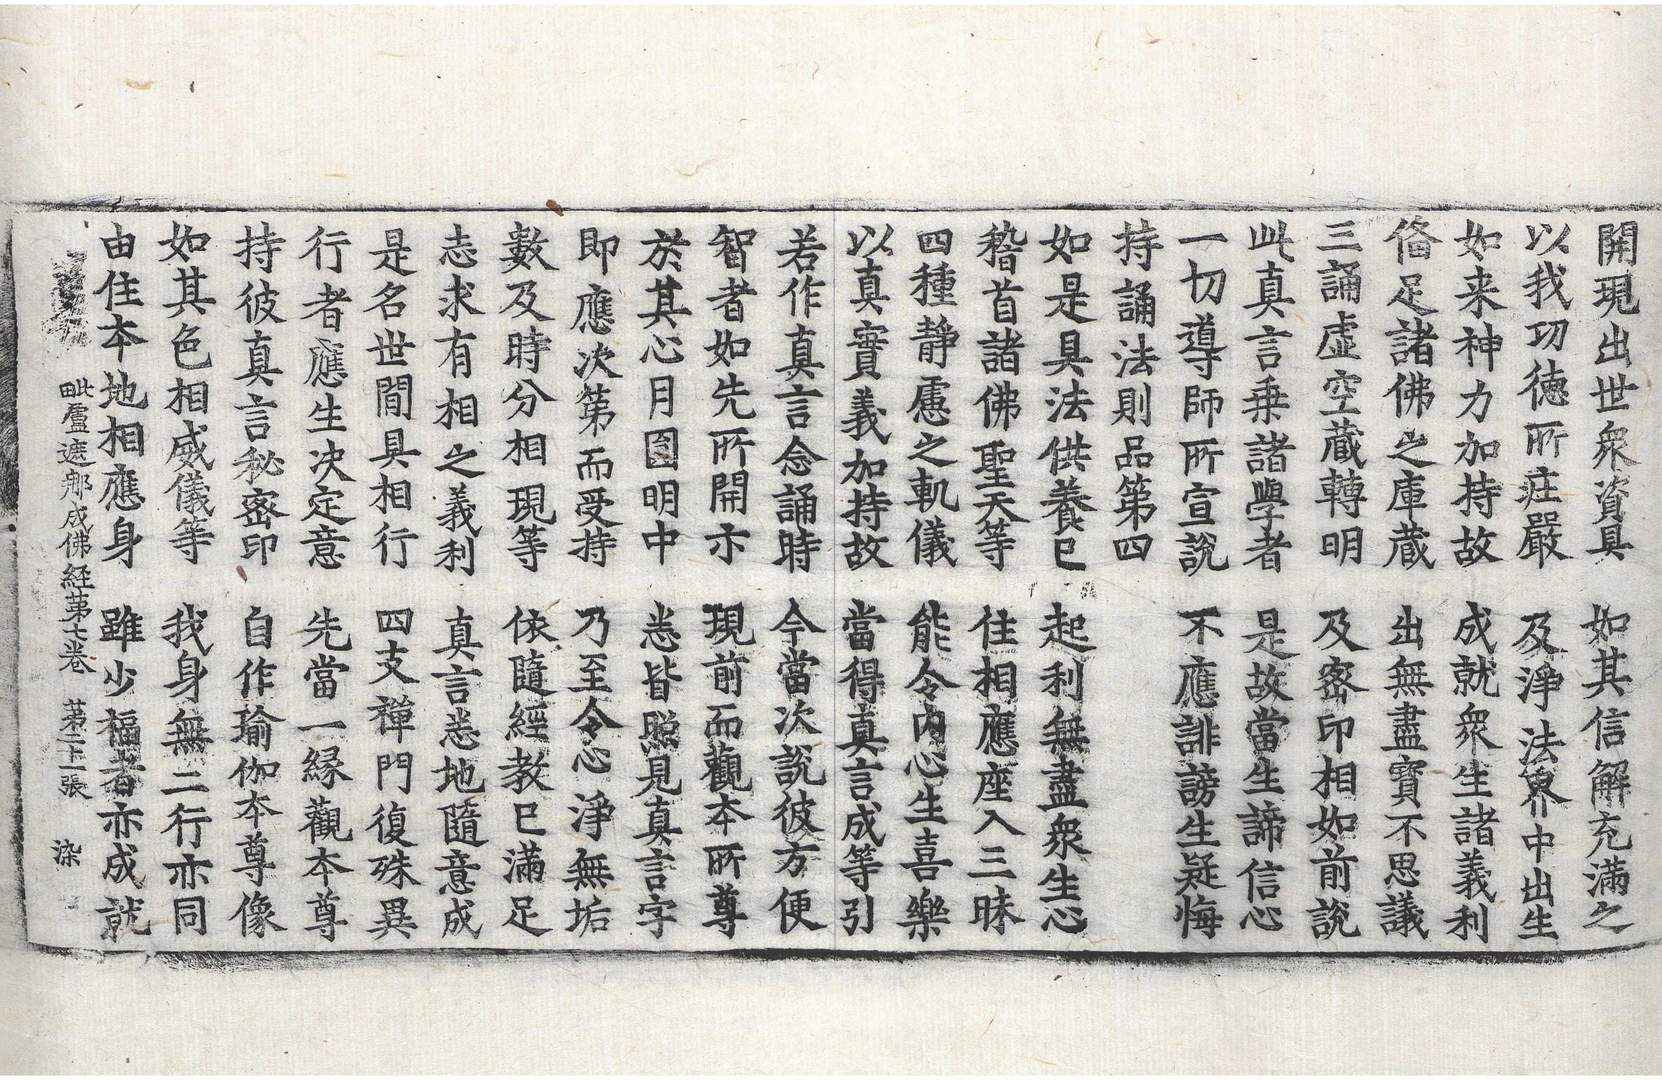 開現出世衆資具　如其信解充滿之
以我功德所莊嚴　及淨法界中出生
如来神力加持故　成就衆生諸義利
俻足諸佛之庫藏　出無盡寶不思議
三誦虛空藏轉明　及密印相如前說
此真言乗諸學者　是故當生諦信心
一切導師所宣說　不應誹謗生疑悔
持誦法則品第四
如是具法供養已　起利無盡衆生心
稽首諸佛聖天等　住相應座入三昧
四種靜慮之軌儀　能令內心生喜樂
以真實義加持故　當得真言成等引
若作真言念誦時　今當次說彼方便
智者如先所開示　現前而觀本所尊
於其心月圎明中　悉皆照見真言字
即應次第而受持　乃至令心淨無垢
數及時分相現等　依隨經教已滿足
志求有相之義利　真言悉地隨意成
是名世間具相行　四支禪門復殊異
行者應生决定意　先當一緣觀本尊
持彼真言秘密印　自作瑜伽本尊像
如其色相威儀等　我身無二行亦同
由住本地相應身　雖少福者亦成就
毗盧遮那成佛経第七卷　第二十一張　染